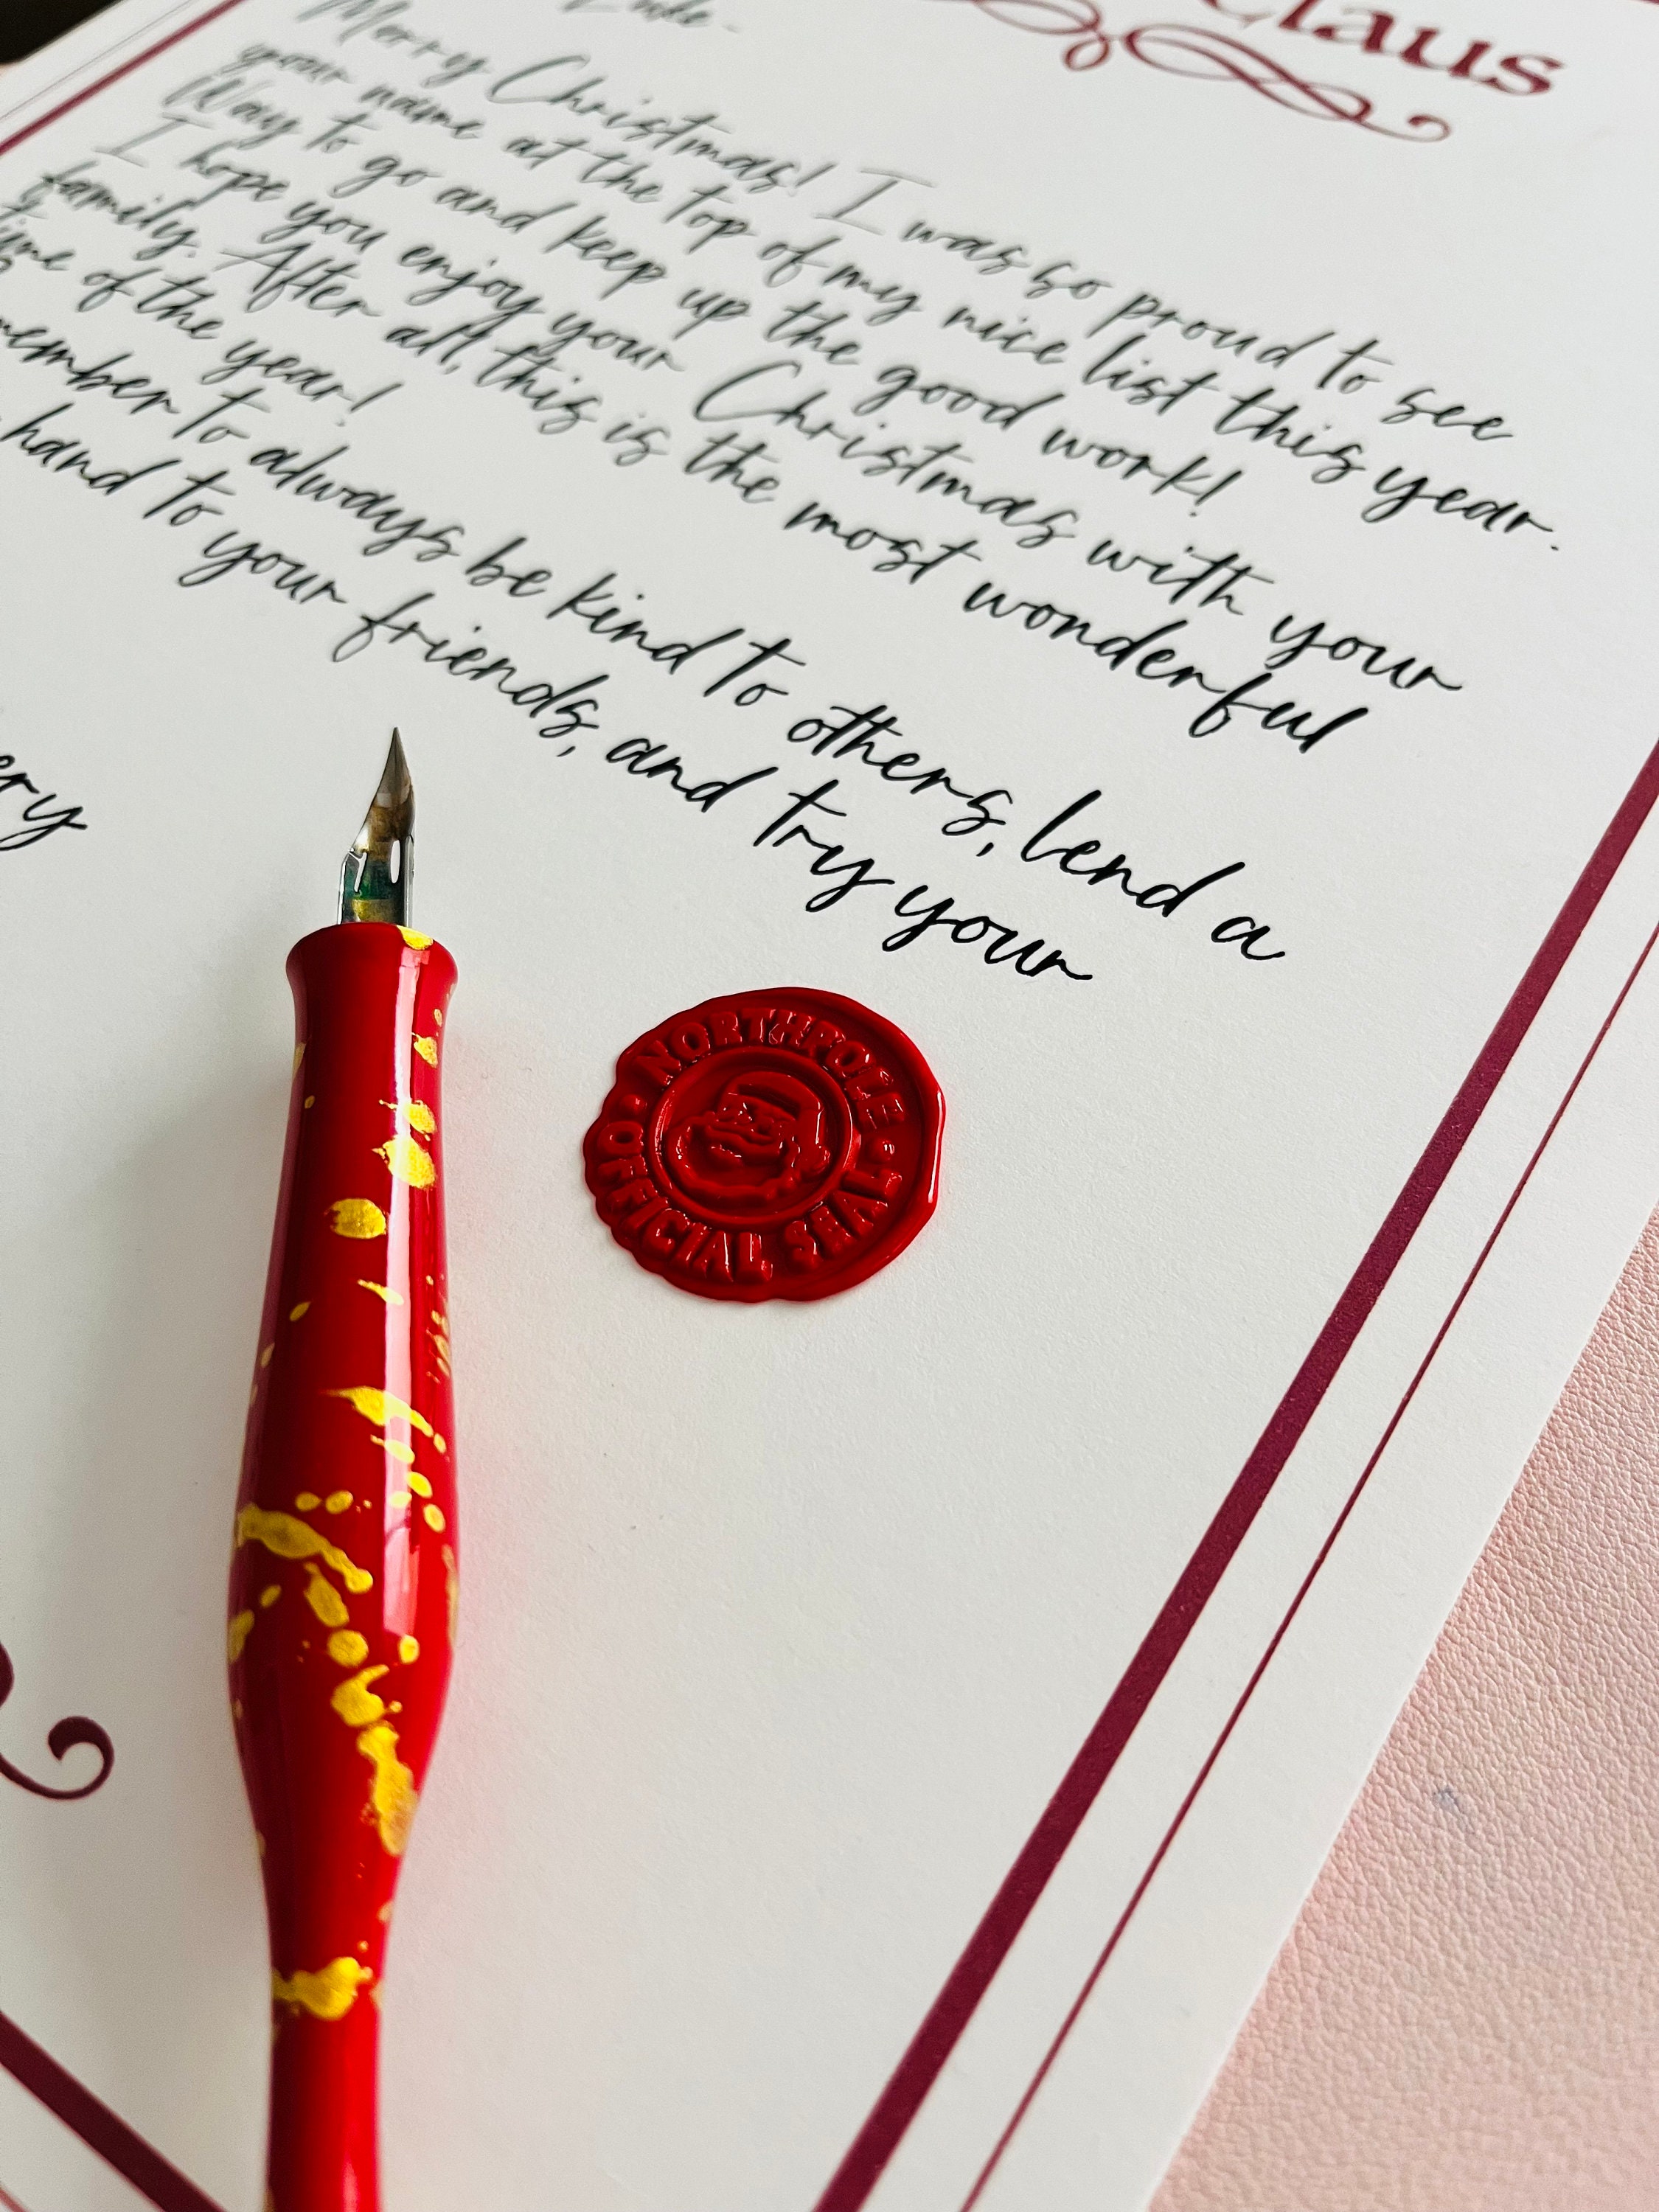 Claus
Merry Christmas! I was so proud to see
your name at the top of my nice list this year.
Way to go and keep up the good work!
I hope you enjoy your Christmas with your
family. After all, this is the most wonderful
time of the year!
member to always be kind to others, lend a
hand to your friends, and try your
ery
NORTHPOLE
OFFICIAL SEAL